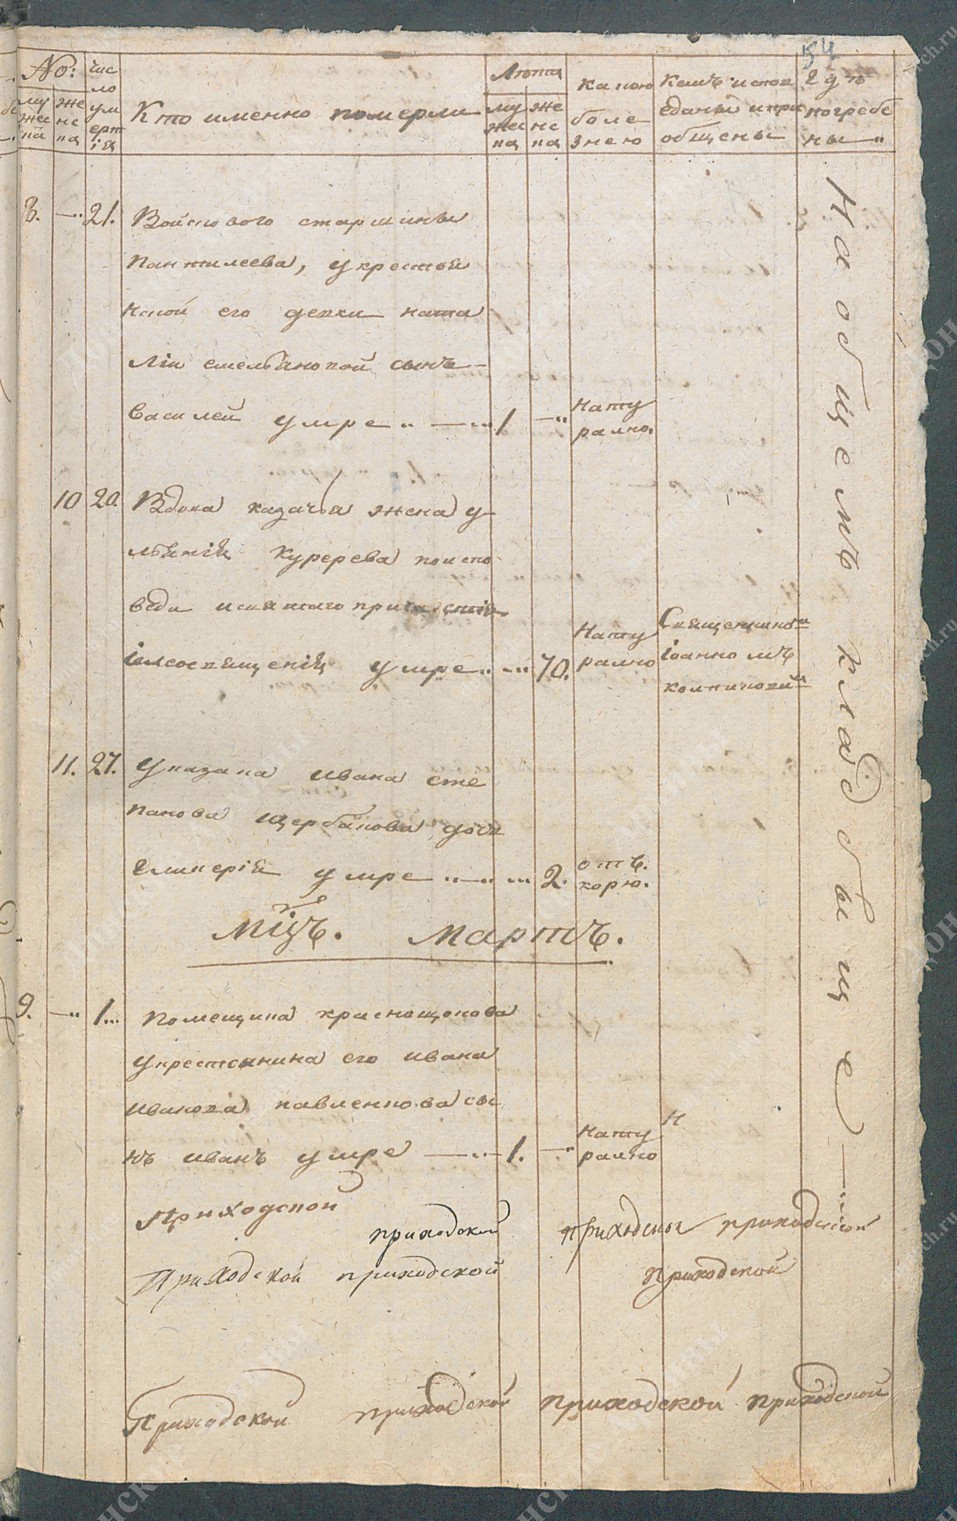 54
No:
му
жес
ка
же
нс
ка
чис
ло
ум
ерт
їя
Кто именно померли
Лѣта
му
жес
ка
же
нс
ка
какою
боле
знею
Кемъ испов
еданы и при
общены
где
погребе
ны
8. 21. Войскового старшины
Пантилеева, у крестья
нской его девки ната
лїи емельяновой сынъ
василей умре 1
нату
рално.
10 20. Вдова казачья жена у
льянїя Куререва по испо
веди и святаго
їелеосвященїя умре 70.
нату
рално
Священнико
їоанномъ
11. 27. Указака Ивана сте
панова щербакова дочь
гликерїя умре 2.
отъ
корю.
Мцъ. Мартъ.
9. 1 Помещика краснощокова
у крестьянина его ивана
иванова павленкова сы
нъ иванъ умре 1.
нату
рално
Н
На общемъ кладбище
Приходской
приходской
приходской
Приходской приходской
приходской
Приходской приходской приходской приходской